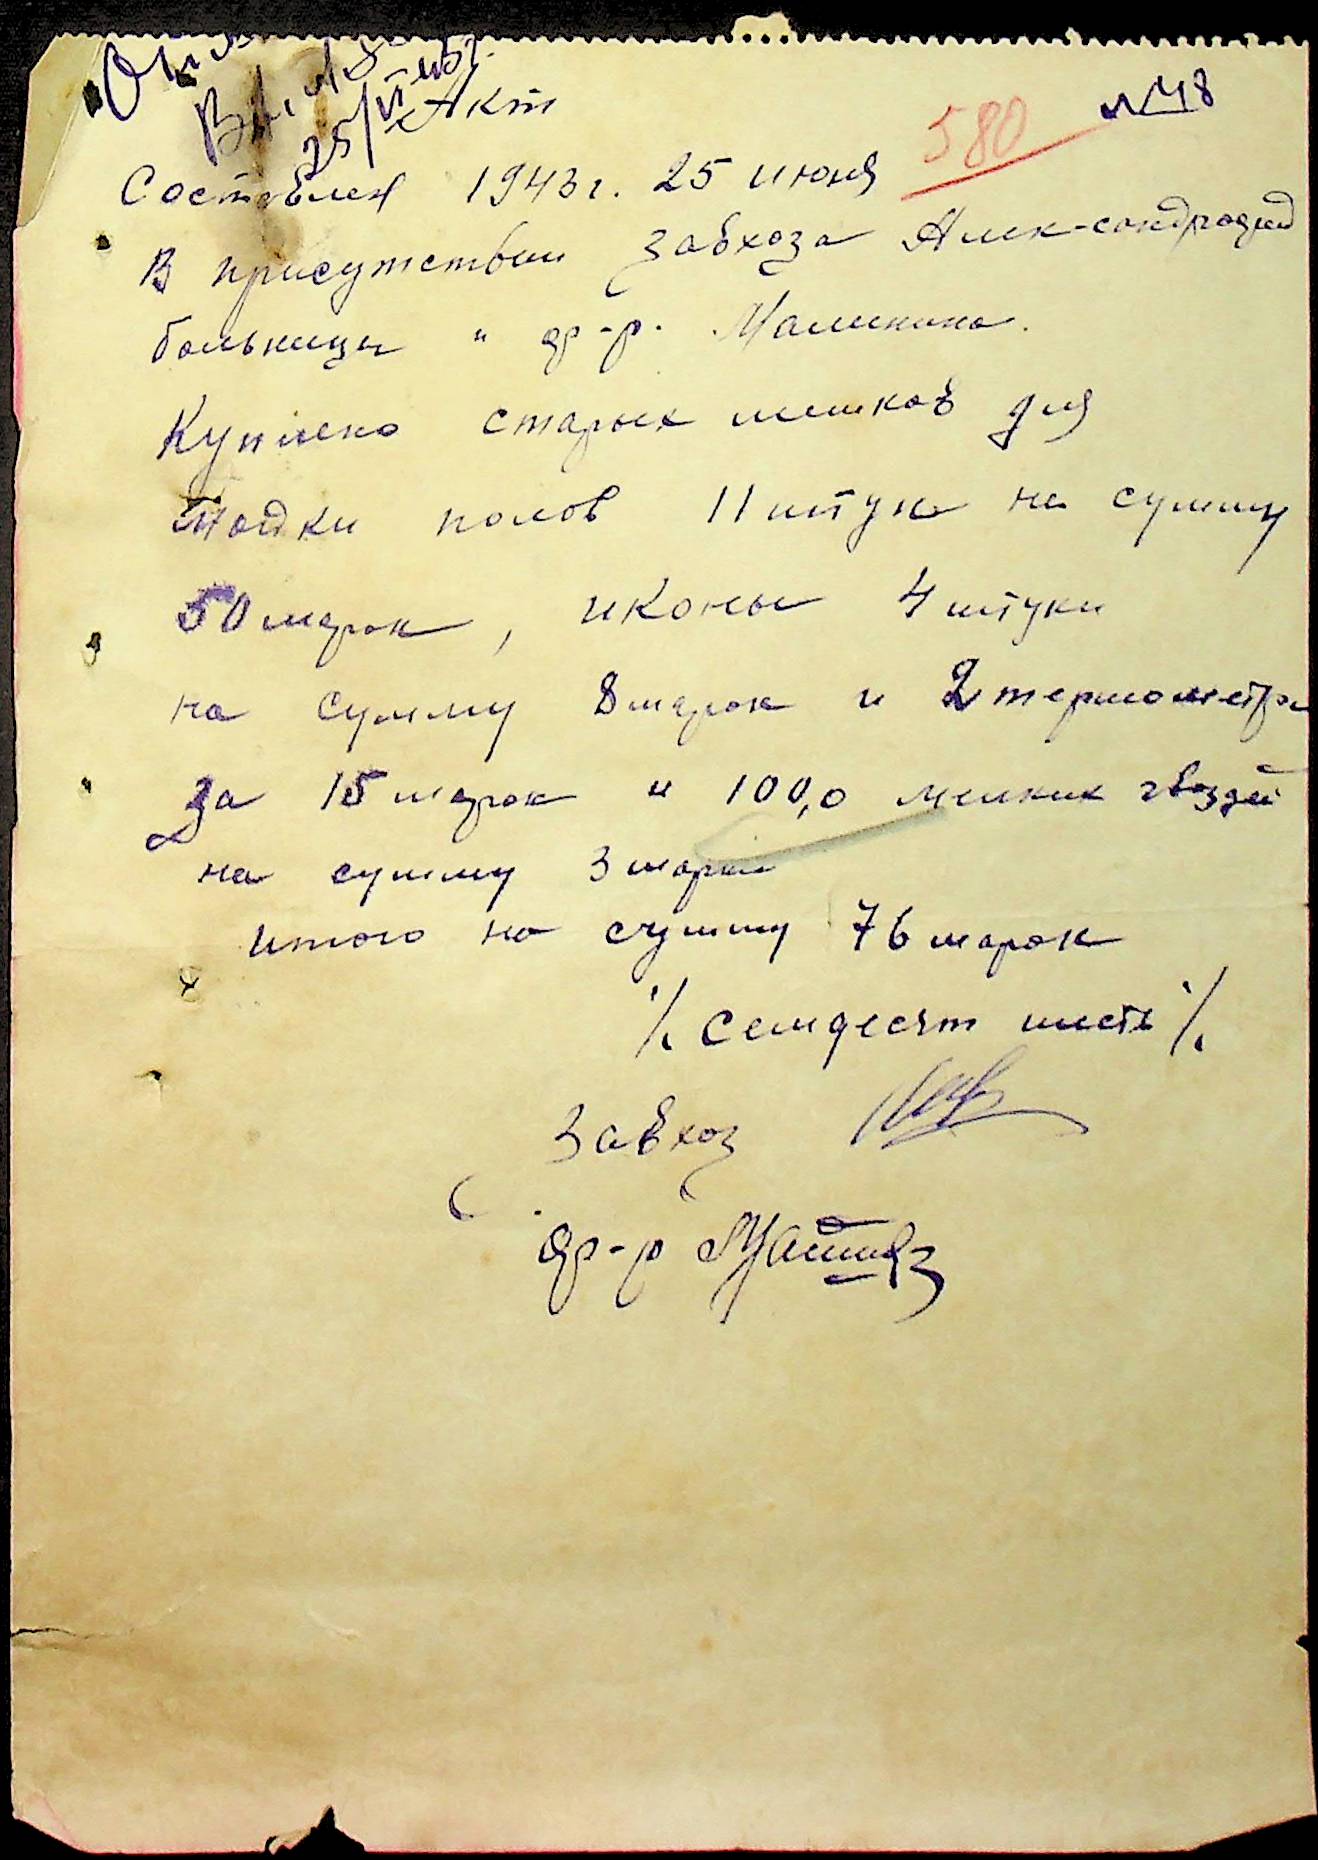 25/VI 43г.
Акт
№48
580
Составлен 1943г. 25 июня
В присутствии завхоза
больницы и др-р. Малинина.
Куплено старых мешков для
мойки полов 11 штук на сумму
50 марок, иконы 4 штуки
на сумму 8 марок и 2 термометра
за 15 марок и 100,0 мелких гвоздей
на сумму 3 марки
итого на сумму 76 марок
·/. семдесят шесть ·/.
Завхоз
др-р